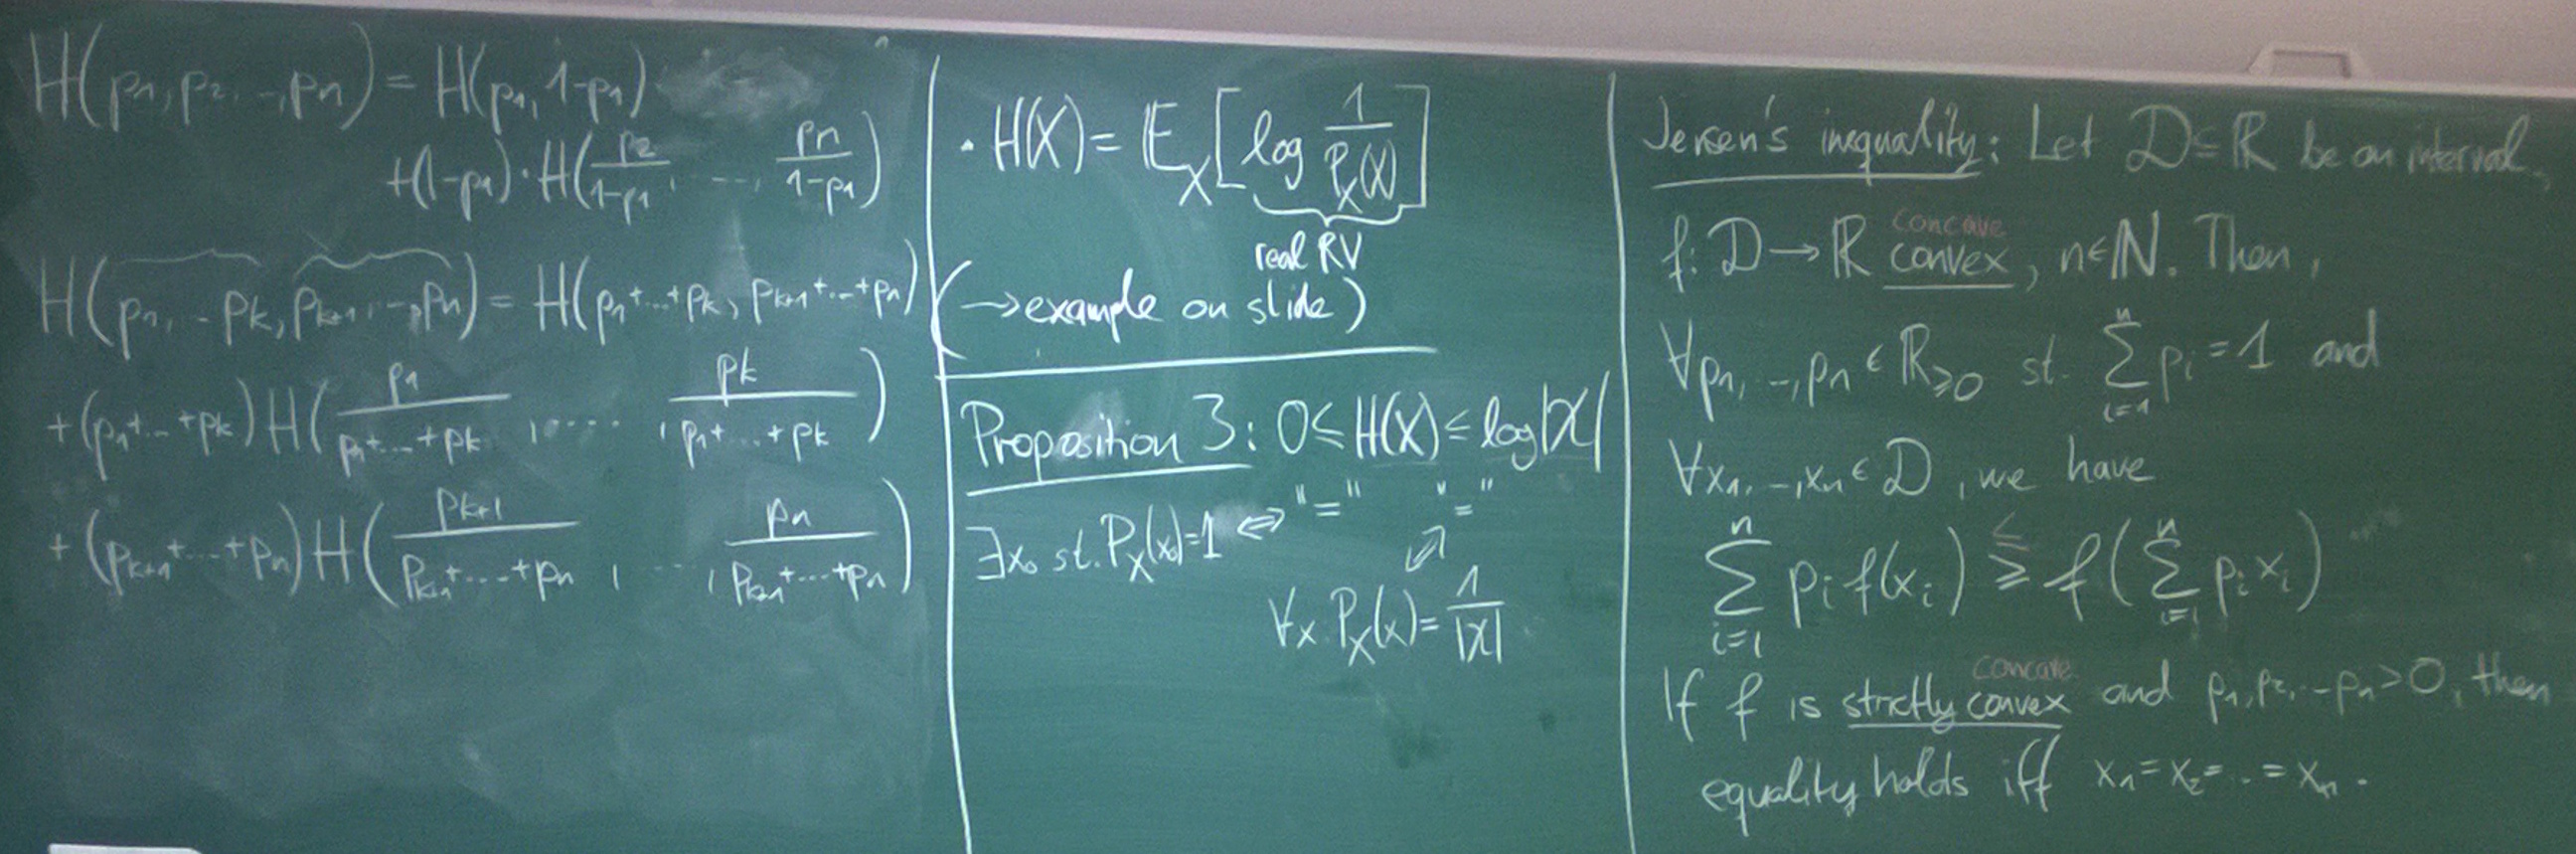 H(p₁, p₂, .., pₙ) = H(p₁, 1-p₁)
+(1-p₁)·H(p₂/(1-p₁), ..., pₙ/(1-p₁))
H(p₁, .. pₖ, pₖ₊₁, .., pₙ) = H(p₁+...+pₖ, pₖ₊₁+...+pₙ)
+(p₁+...+pₖ) H(p₁/(p₁+...+pₖ), ..., pₖ/(p₁+...+pₖ))
+(pₖ₊₁+...+pₙ) H(pₖ₊₁/(pₖ₊₁+...+pₙ), ..., pₙ/(pₖ₊₁+...+pₙ))
· H(X) = 𝔼_X[log 1/P_X(X)]
real RV
(→ example on slide)
Proposition 3: 0 ≤ H(X) ≤ log|𝒳|
∃x₀ st. P_X(x₀)=1 ⇔ "=" "="
⇔
∀x P_X(x) = 1/|𝒳|
Jensen's inequality: Let 𝒟 ⊆ ℝ be an interval,
concave
f: 𝒟 → ℝ convex, n∈ℕ. Then,
∀p₁, .., pₙ ∈ ℝ≥0 st. ∑ᵢ₌₁ⁿ pᵢ = 1 and
∀x₁, .., xₙ ∈ 𝒟, we have
≤
∑ᵢ₌₁ⁿ pᵢ f(xᵢ) ≥ f(∑ᵢ₌₁ⁿ pᵢ xᵢ)
concave
If f is strictly convex and p₁, p₂, .. pₙ > 0, then
equality holds iff x₁ = x₂ = .. = xₙ.